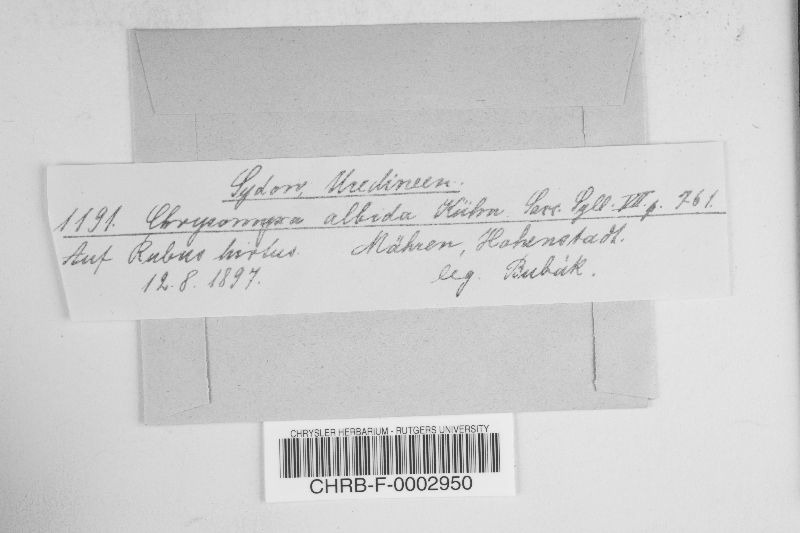 Sydow, Uredineen.
1191. Chrysomyxa albida Kühn. Sacc. Syll. VII. p. 761.
Auf Rubus hirtus. Mähren, Hohenstadt.
12. 8. 1897. leg. Bubák.
CHRYSLER HERBARIUM - RUTGERS UNIVERSITY
CHRB-F-0002950